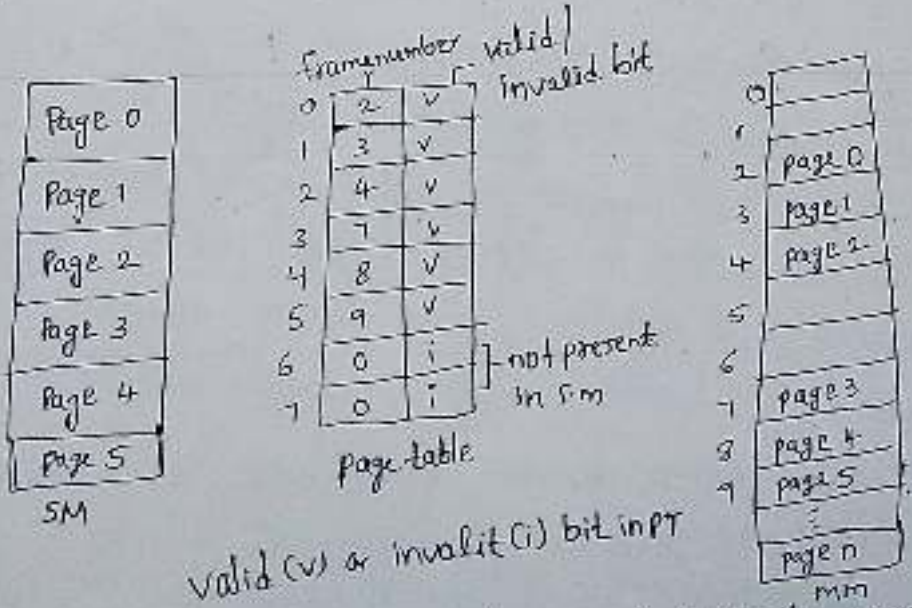 Page 0
Page 1
Page 2
Page 3
Page 4
Page 5
SM
framenumber
valid /
invalid bit
0 2 v
1 3 v
2 4 v
3 7 v
4 8 v
5 9 v
6 0 i
7 0 i
not present
in s.m
page-table
0
1
2 page 0
3 page 1
4 page 2
5
6
7 page 3
8 page 4
9 page 5
page n
mm
valid (v) or invalit (i) bit in PT